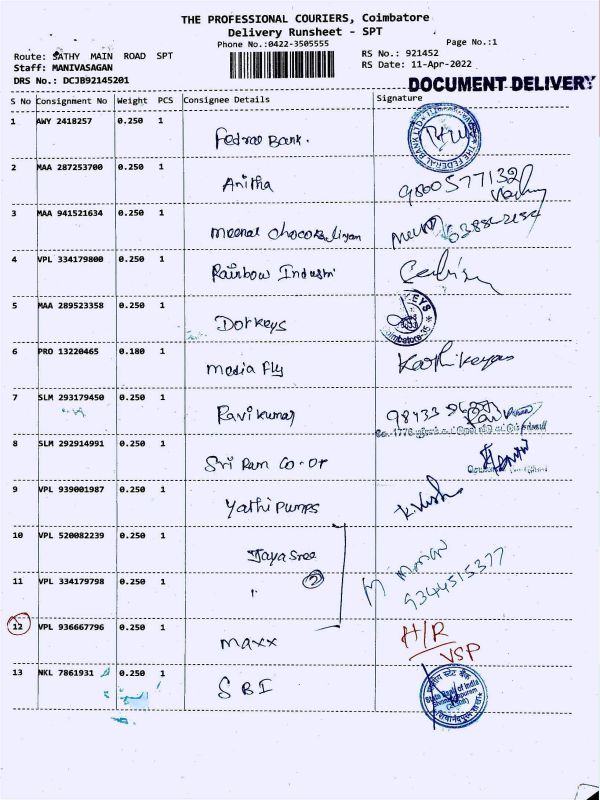 THE PROFESSIONAL COURIERS, Coimbatore
Delivery Runsheet - SPT
Phone No.:0422-3505555
Page No.:1
Route: SATHY MAIN ROAD SPT
Staff: MANIVASAGAN
DRS No.: DCJB92145201
RS No.: 921452
RS Date: 11-Apr-2022
DOCUMENT DELIVERY
S No Consignment No Weight PCS Consignee Details Signature
1 AWY 2418257 0.250 1 Fedral Bank. THE FEDERAL BANK LTD
2 MAA 287253700 0.250 1 Anitha 9800577132
3 MAA 941521634 0.250 1 Meenal
4 VPL 334179800 0.250 1 Rainbow Industri
5 MAA 289523358 0.250 1 Dotkeys
6 PRO 13220465 0.180 1 Media Fly Karthikeyan
7 SLM 293179450 0.250 1 Ravikumar
8 SLM 292914991 0.250 1 Sri Ram Co-op
9 VPL 939001987 0.250 1 Yathi Pumps
10 VPL 520082239 0.250 1 Jayasree
11 VPL 334179798 0.250 1 " 2 9344515377
12 VPL 936667796 0.250 1 maxx H/R
VSP
13 NKL 7861931 0.250 1 SBI State Bank of India